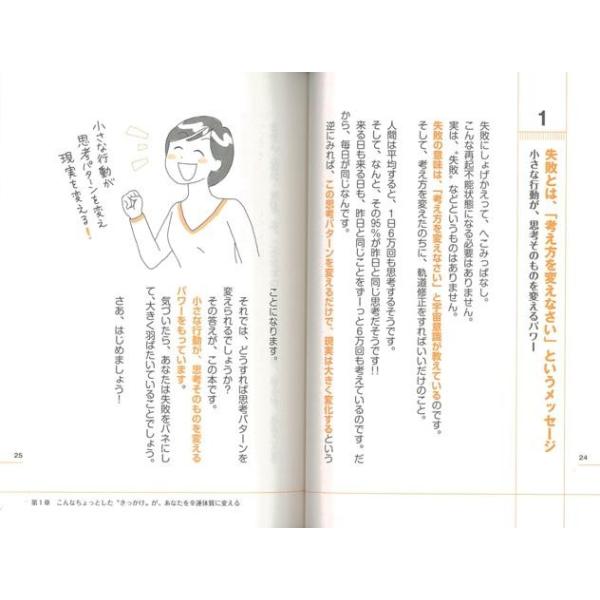 1
失敗とは、「考え方を変えなさい」というメッセージ
小さな行動が、思考そのものを変えるパワー
失敗にしょげかえって、へこみっぱなし。
こんな再起不能状態になる必要はありません。
実は、“失敗”などというものはありません。
失敗の意味は、「考え方を変えなさい」と宇宙意識が教えているのです。
そして、考え方を変えたのちに、軌道修正をすればいいだけのこと。
人間は平均すると、1日6万回も思考するそうです。
そして、なんと、その95%が昨日と同じ思考だそうです!!
来る日も来る日も、昨日と同じことをずーっと6万回も考えているのです。だ
から、毎日が同じなんです。
逆にみれば、この思考パターンを変えるだけで、現実は大きく変化するという
24
ことになります。
それでは、どうすれば思考パターンを
変えられるでしょうか?
その答えが、この本です。
小さな行動が、思考そのものを変える
パワーをもっています。
気づいたら、あなたは失敗をバネにし
て、大きく羽ばたいていることでしょう。
さあ、はじめましょう!
小さな行動が
思考パターンを変え
現実を変える!
25
第1章 こんなちょっとした“きっかけ”が、あなたを幸運体質に変える